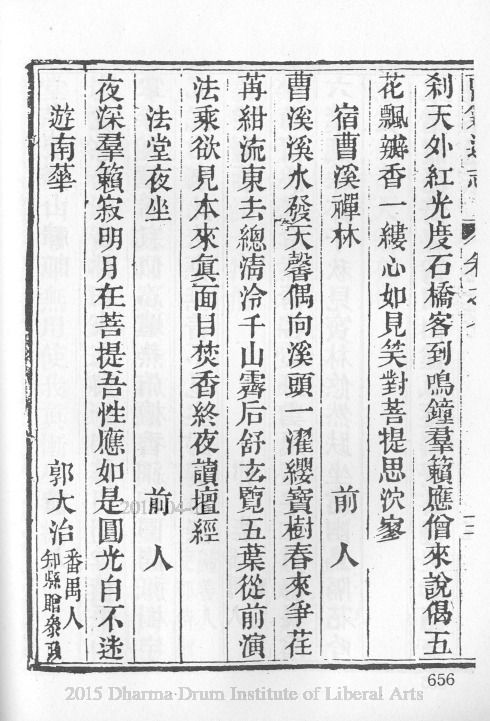 刹天外紅光度石橋客到鳴鐘羣籟應僧來說偈五
花飄瓣香一縷心如見笑對菩提思泬寥
宿曹溪禪林 前人
曹溪溪水發天馨偶向溪頭一濯纓寶樹春來爭荏
苒紺流東去總清泠千山霽后舒玄覽五葉從前演
法乘欲見本來眞面目焚香終夜讀壇經
法堂夜坐 前人
夜深羣籟寂明月在菩提吾性應如是圓光自不迷
遊南華 郭大治 番禺人知縣贈叅政
656
2015 Dharma-Drum Institute of Liberal Arts